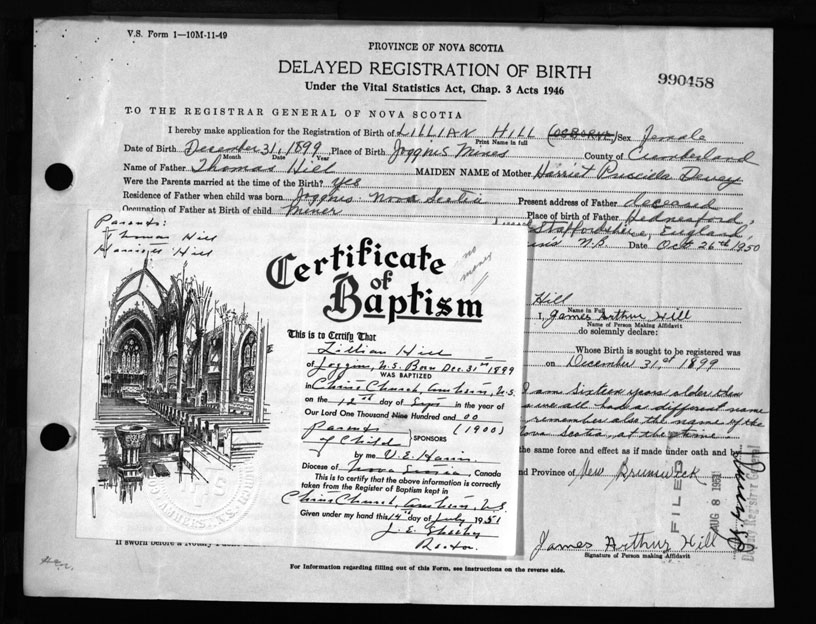 V.S. Form 1—10M-11-49
PROVINCE OF NOVA SCOTIA
DELAYED REGISTRATION OF BIRTH
990458
Under the Vital Statistics Act, Chap. 3 Acts 1946
TO THE REGISTRAR GENERAL OF NOVA SCOTIA
I hereby make application for the Registration of Birth of LILLIAN HILL (OSBORNE) Sex Female
Print Name in full
Date of Birth December 31, 1899 Place of Birth Joggins Mines County of Cumberland
Month Date Year
Name of Father Thomas Hill MAIDEN NAME of Mother Harriet Priscilla Devey
Were the Parents married at the time of the Birth? Yes
Residence of Father when child was born Joggins Nova Scotia Present address of Father deceased
Occupation of Father at Birth of child Miner Place of birth of Father Hednesford,
Staffordshire, England
N.B. Date Oct 26th 1950
Hill
Name in Full
I, James Arthur Hill
Name of Person Making Affidavit
do solemnly declare:
Whose Birth is sought to be registered was
on December 31st 1899
I am sixteen years older than
we all had a different name
remember also the name of the
Nova Scotia, at the time
the same force and effect as if made under oath and by
nd Province of New Brunswick
FILED
AUG 8 1951
James Arthur Hill
Signature of Person making Affidavit
If sworn before a Notary
For Information regarding filling out of this Form, see instructions on the reverse side.
Parents:
Thomas Hill
Harriet Hill
Certificate
of
Baptism
no
money
This is to Certify That
Lillian Hill
of Joggins, N.S. Born Dec. 31st 1899
WAS BAPTIZED
in Christ Church, Amherst, N.S.
on the 12th day of Sept in the year of
Our Lord One Thousand Nine Hundred and 00
(1900)
Parents
of Child
SPONSORS
by me V. E. Harris
Diocese of Nova Scotia, Canada
This is to certify that the above information is correctly
taken from the Register of Baptism kept in
Christ Church, Amherst, N.S.
Given under my hand this 14th day of July 1951
Rector